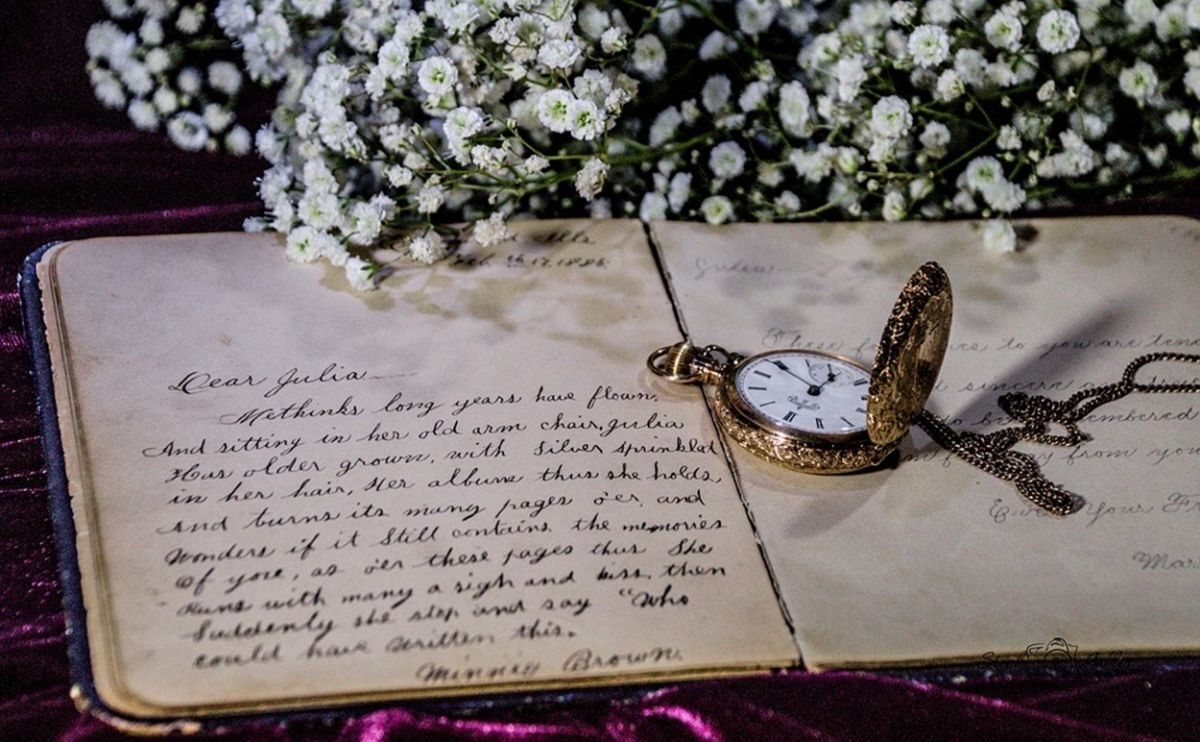 Feb 17, 1886
Dear Julia
Methinks long years have flown,
And sitting in her old arm chair, Julia
Has older grown, with Silver Sprinkled
in her hair, Her album thus she holds,
And turns its many pages o'er, and
Wonders if it Still contains the memories
Of yore, as o'er these pages thus She
Runs with many a sigh and kiss, then
Suddenly she stop and say "Who
could have written this.
Minney Brown.
Julia
These to you are
sincere
be remembered
from you
Your
Mar